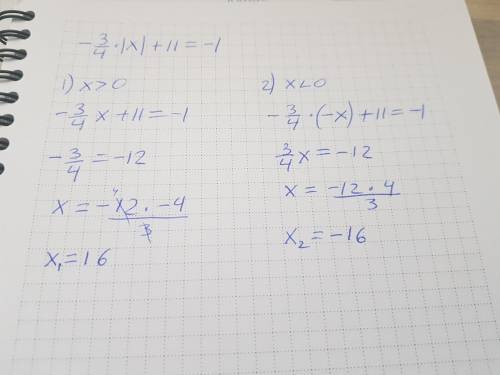 -3/4 · |x| + 11 = -1
1) x > 0
-3/4 x + 11 = -1
-3/4 = -12
x = -12 · -4 / 3
4
x₁ = 16
2) x < 0
-3/4 · (-x) + 11 = -1
3/4 x = -12
x = -12 · 4 / 3
x₂ = -16